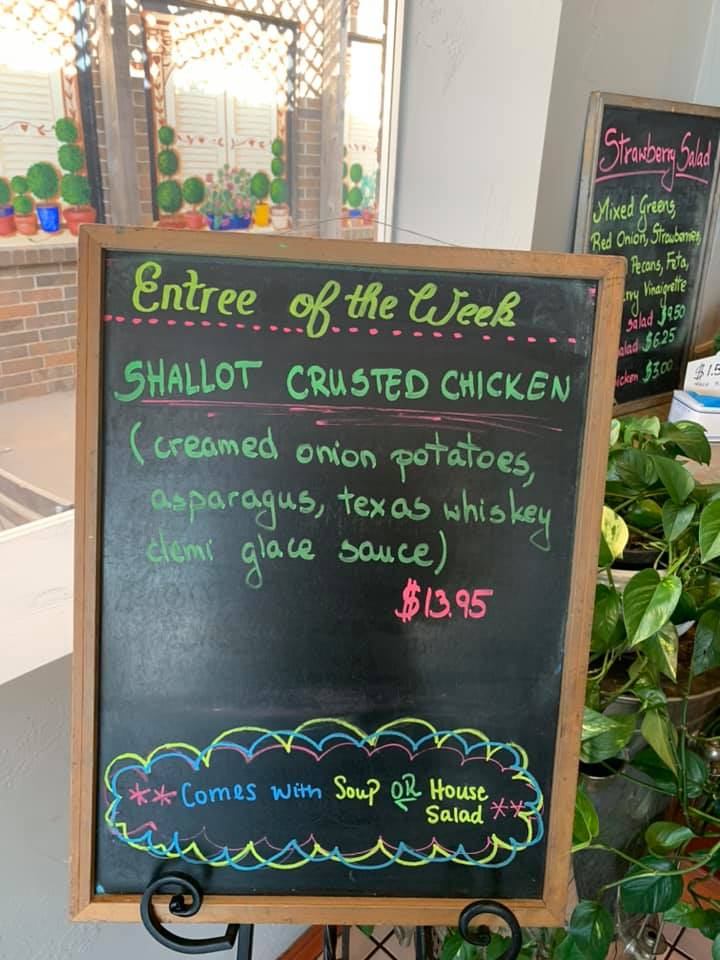 Entree of the Week
SHALLOT CRUSTED CHICKEN
(creamed onion potatoes,
asparagus, texas whiskey
demi glace sauce)
$13.95
** Comes with Soup OR House
Salad **
Strawberry Salad
Mixed Greens,
Red Onion, Strawberries,
Pecans, Feta,
Vinaigrette
salad $9.50
$6.25
$3.00